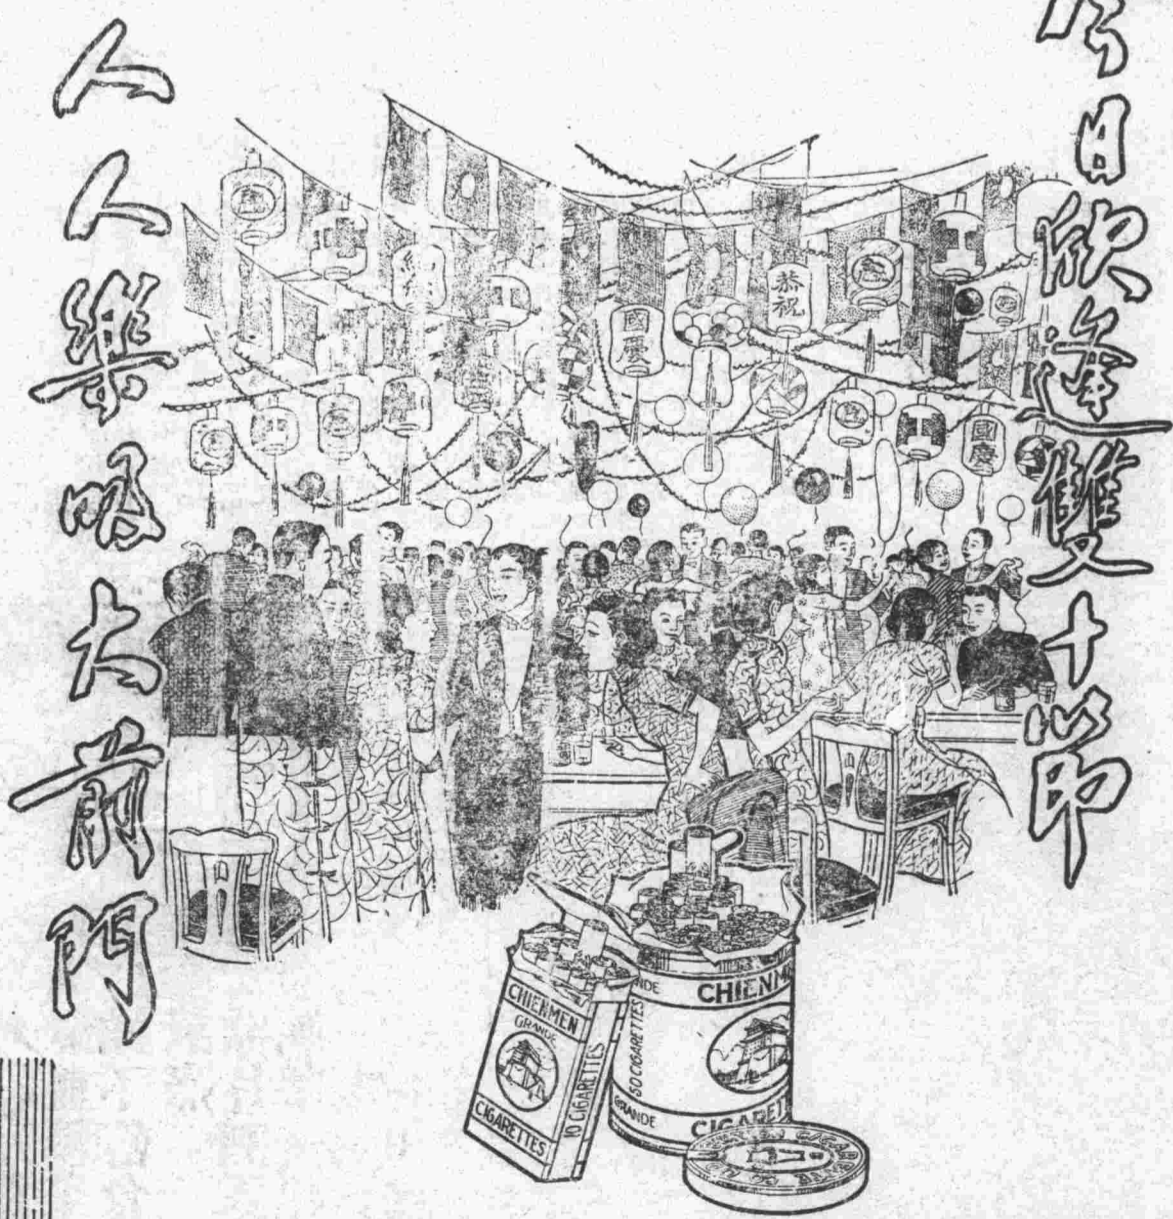 今日欣逢雙十節
人人樂吸大前門
恭祝
國慶
國慶
CHIENMEN
GRANDE
CIGARETTES
10 CIGARETTES
CHIENM
50 CIGARETTES
GRANDE
CIGARET